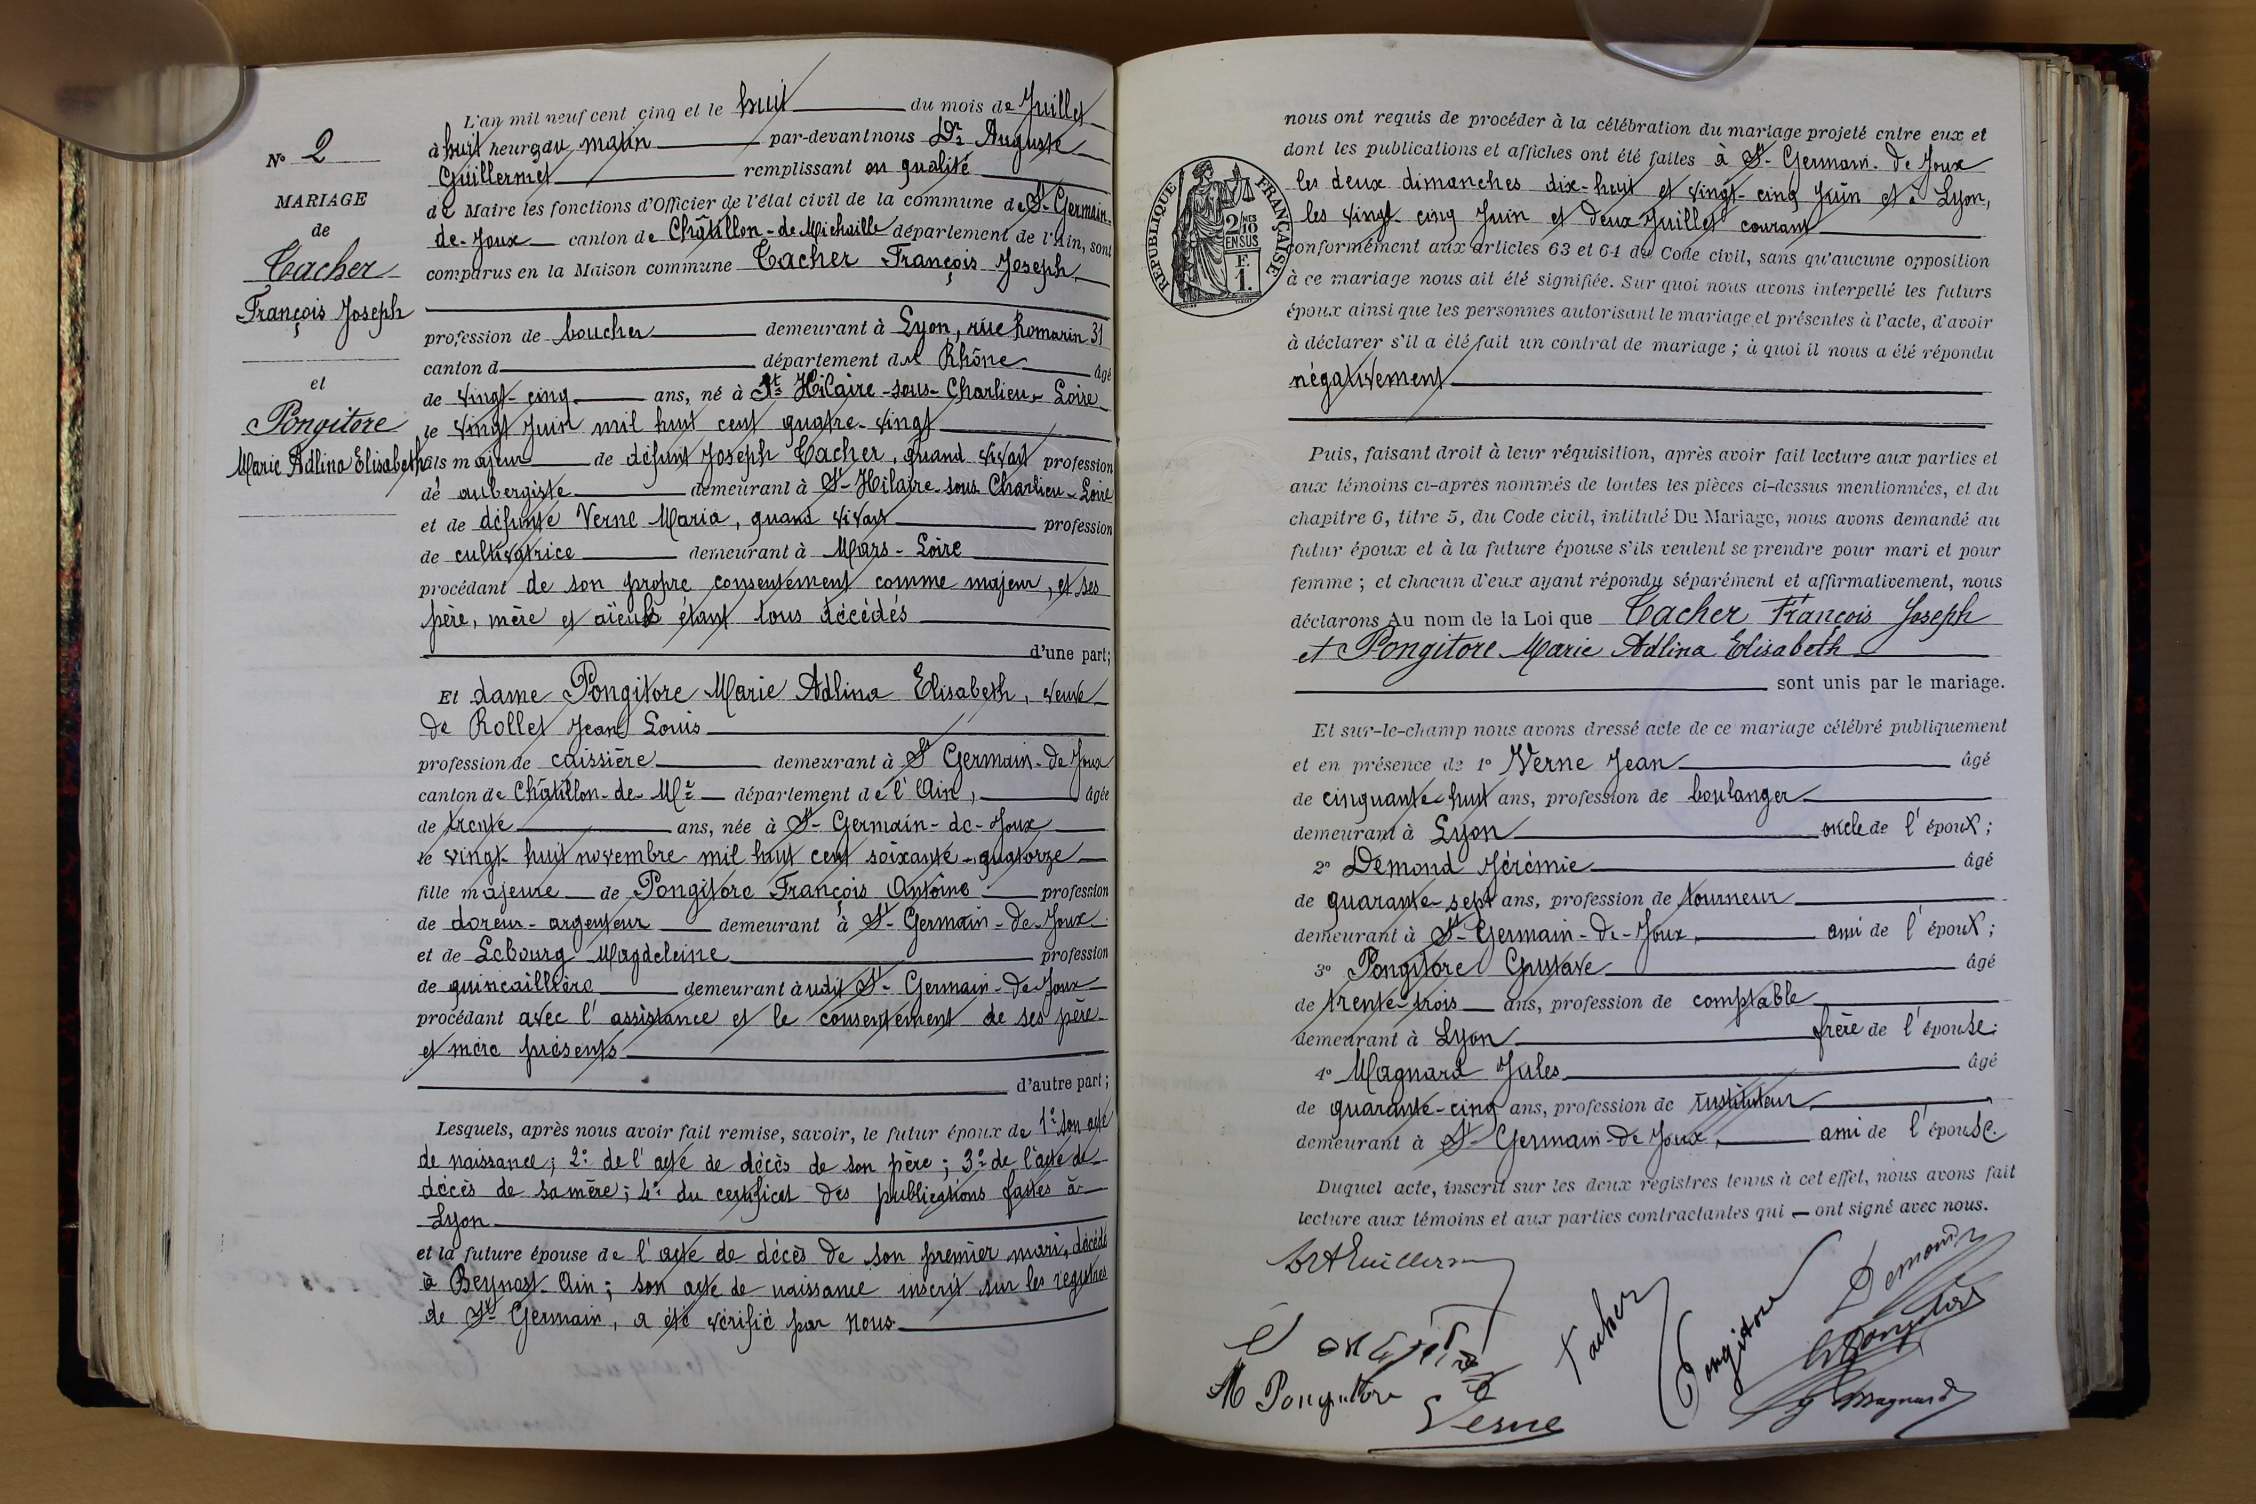 N° 2
MARIAGE
de
Tacher
François Joseph
et
Pongitore
Marie Adlina Elisabeth
L'an mil neuf cent cinq et le huit du mois de Juillet
à huit heures du matin par-devant nous Dr Auguste
Guillermet remplissant en qualité
de Maire les fonctions d'Officier de l'état civil de la commune de St-Germain-
de-Joux canton de Châtillon-de-Michaille département de l'Ain, sont
comparus en la Maison commune Tacher François Joseph
profession de boucher demeurant à Lyon, rue Romarin 31
canton d département du Rhône âgé
de vingt-cinq ans, né à St Hilaire-sous-Charlieu - Loire
le vingt Juin mil huit cent quatre-vingt
fils majeur de défunt Joseph Tacher, quand vivait profession
de aubergiste demeurant à St-Hilaire-sous Charlieu - Loire
et de défunte Verne Maria, quand vivait profession
de cultivatrice demeurant à Mars - Loire
procédant de son propre consentement comme majeur, et ses
père, mère et aïeuls étant tous décédés
d'une part;
Et dame Pongitore Marie Adlina Elisabeth, veuve
de Rollet Jean Louis
profession de caissière demeurant à St Germain-de Joux
canton de Châtillon-de-Mlle département de l'Ain, âgée
de trente ans, née à St-Germain-de-Joux
le vingt-huit novembre mil huit cent soixante-quatorze
fille majeure de Pongitore François Antoine profession
de doreur-argenteur demeurant à St-Germain-de-Joux
et de Lebourg Magdeleine profession
de quincaillère demeurant à udit St-Germain-de Joux
procédant avec l'assistance et le consentement de ses père
et mère présents
d'autre part;
Lesquels, après nous avoir fait remise, savoir, le futur époux de 1° son acte
de naissance; 2° de l'acte de décès de son père; 3° de l'acte de
décès de sa mère; 4° du certificat des publications faites à
Lyon
et la future épouse de l'acte de décès de son premier mari, décédé
à Beynost-Ain; son acte de naissance inscrit sur les registres
de St Germain, a été vérifié par nous
RÉPUBLIQUE FRANÇAISE
2/10 EN SUS
F.
1.
nous ont requis de procéder à la célébration du mariage projeté entre eux et
dont les publications et affiches ont été faites à St-Germain-de Joux
les deux dimanches dix-huit et vingt-cinq Juin et à Lyon,
les vingt cinq Juin et deux Juillet courant
conformément aux articles 63 et 64 du Code civil, sans qu'aucune opposition
à ce mariage nous ait été signifiée. Sur quoi nous avons interpellé les futurs
époux ainsi que les personnes autorisant le mariage et présentes à l'acte, d'avoir
à déclarer s'il a été fait un contrat de mariage; à quoi il nous a été répondu
négativement
Puis, faisant droit à leur réquisition, après avoir fait lecture aux parties et
aux témoins ci-après nommés de toutes les pièces ci-dessus mentionnées, et du
chapitre 6, titre 5, du Code civil, intitulé Du Mariage, nous avons demandé au
futur époux et à la future épouse s'ils veulent se prendre pour mari et pour
femme; et chacun d'eux ayant répondu séparément et affirmativement, nous
déclarons Au nom de la Loi que Tacher François Joseph
et Pongitore Marie Adlina Elisabeth
sont unis par le mariage.
Et sur-le-champ nous avons dressé acte de ce mariage célébré publiquement
et en présence de 1° Verne Jean âgé
de cinquante-huit ans, profession de boulanger
demeurant à Lyon oncle de l'époux;
2° Démond Jérémie âgé
de quarante-sept ans, profession de tourneur
demeurant à St-Germain-de-Joux, ami de l'époux;
3° Pongitore Gustave âgé
de trente-trois ans, profession de comptable
demeurant à Lyon frère de l'épouse;
4° Magnard Jules âgé
de quarante-cinq ans, profession de Instituteur
demeurant à St-Germain-de Joux, ami de l'épouse.
Duquel acte, inscrit sur les deux registres tenus à cet effet, nous avons fait
lecture aux témoins et aux parties contractantes qui ont signé avec nous.
Dr A Guillermet
Tacher
Pongitore
Demond
M Pongitore
Verne
J Magnard